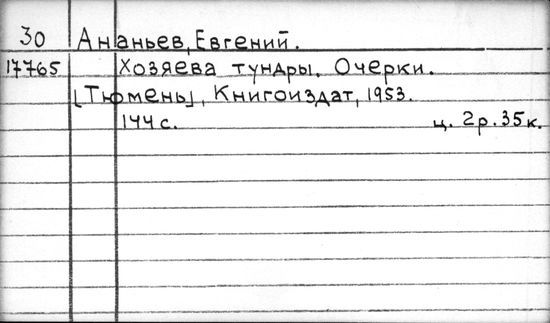 30 Ананьев, Евгений.
17765 Хозяева тундры. Очерки.
[Тюмень], Книгоиздат, 1953.
144 с. ц. 2р. 35к.